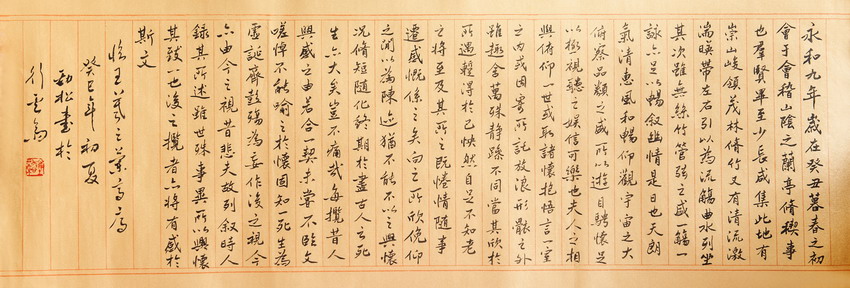 永和九年歲在癸丑暮春之初
會于會稽山陰之蘭亭脩禊事
也羣賢畢至少長咸集此地有
崇山峻領茂林脩竹又有清流激
湍暎帶左右引以為流觴曲水列坐
其次雖無絲竹管弦之盛一觴一
詠亦足以暢敘幽情是日也天朗
氣清惠風和暢仰觀宇宙之大
俯察品類之盛所以遊目騁懷足
以極視聽之娛信可樂也夫人之相
與俯仰一世或取諸懷抱悟言一室
之內或因寄所託放浪形骸之外
雖趣舍萬殊靜躁不同當其欣於
所遇蹔得於己怏然自足不知老
之將至及其所之既惓情隨事
遷感慨係之矣向之所欣俛仰
之閒以為陳迹猶不能不以之興懷
況脩短隨化終期於盡古人云死
生亦大矣豈不痛哉每攬昔人
興感之由若合一契未嘗不臨文
嗟悼不能喻之於懷固知一死生為
虛誕齊彭殤為妄作後之視今
亦由今之視昔悲夫故列敘時人
錄其所述雖世殊事異所以興懷
其致一也後之攬者亦將有感於
斯文
臨王羲之蘭亭序
癸巳年初夏
勁松書於
行雲